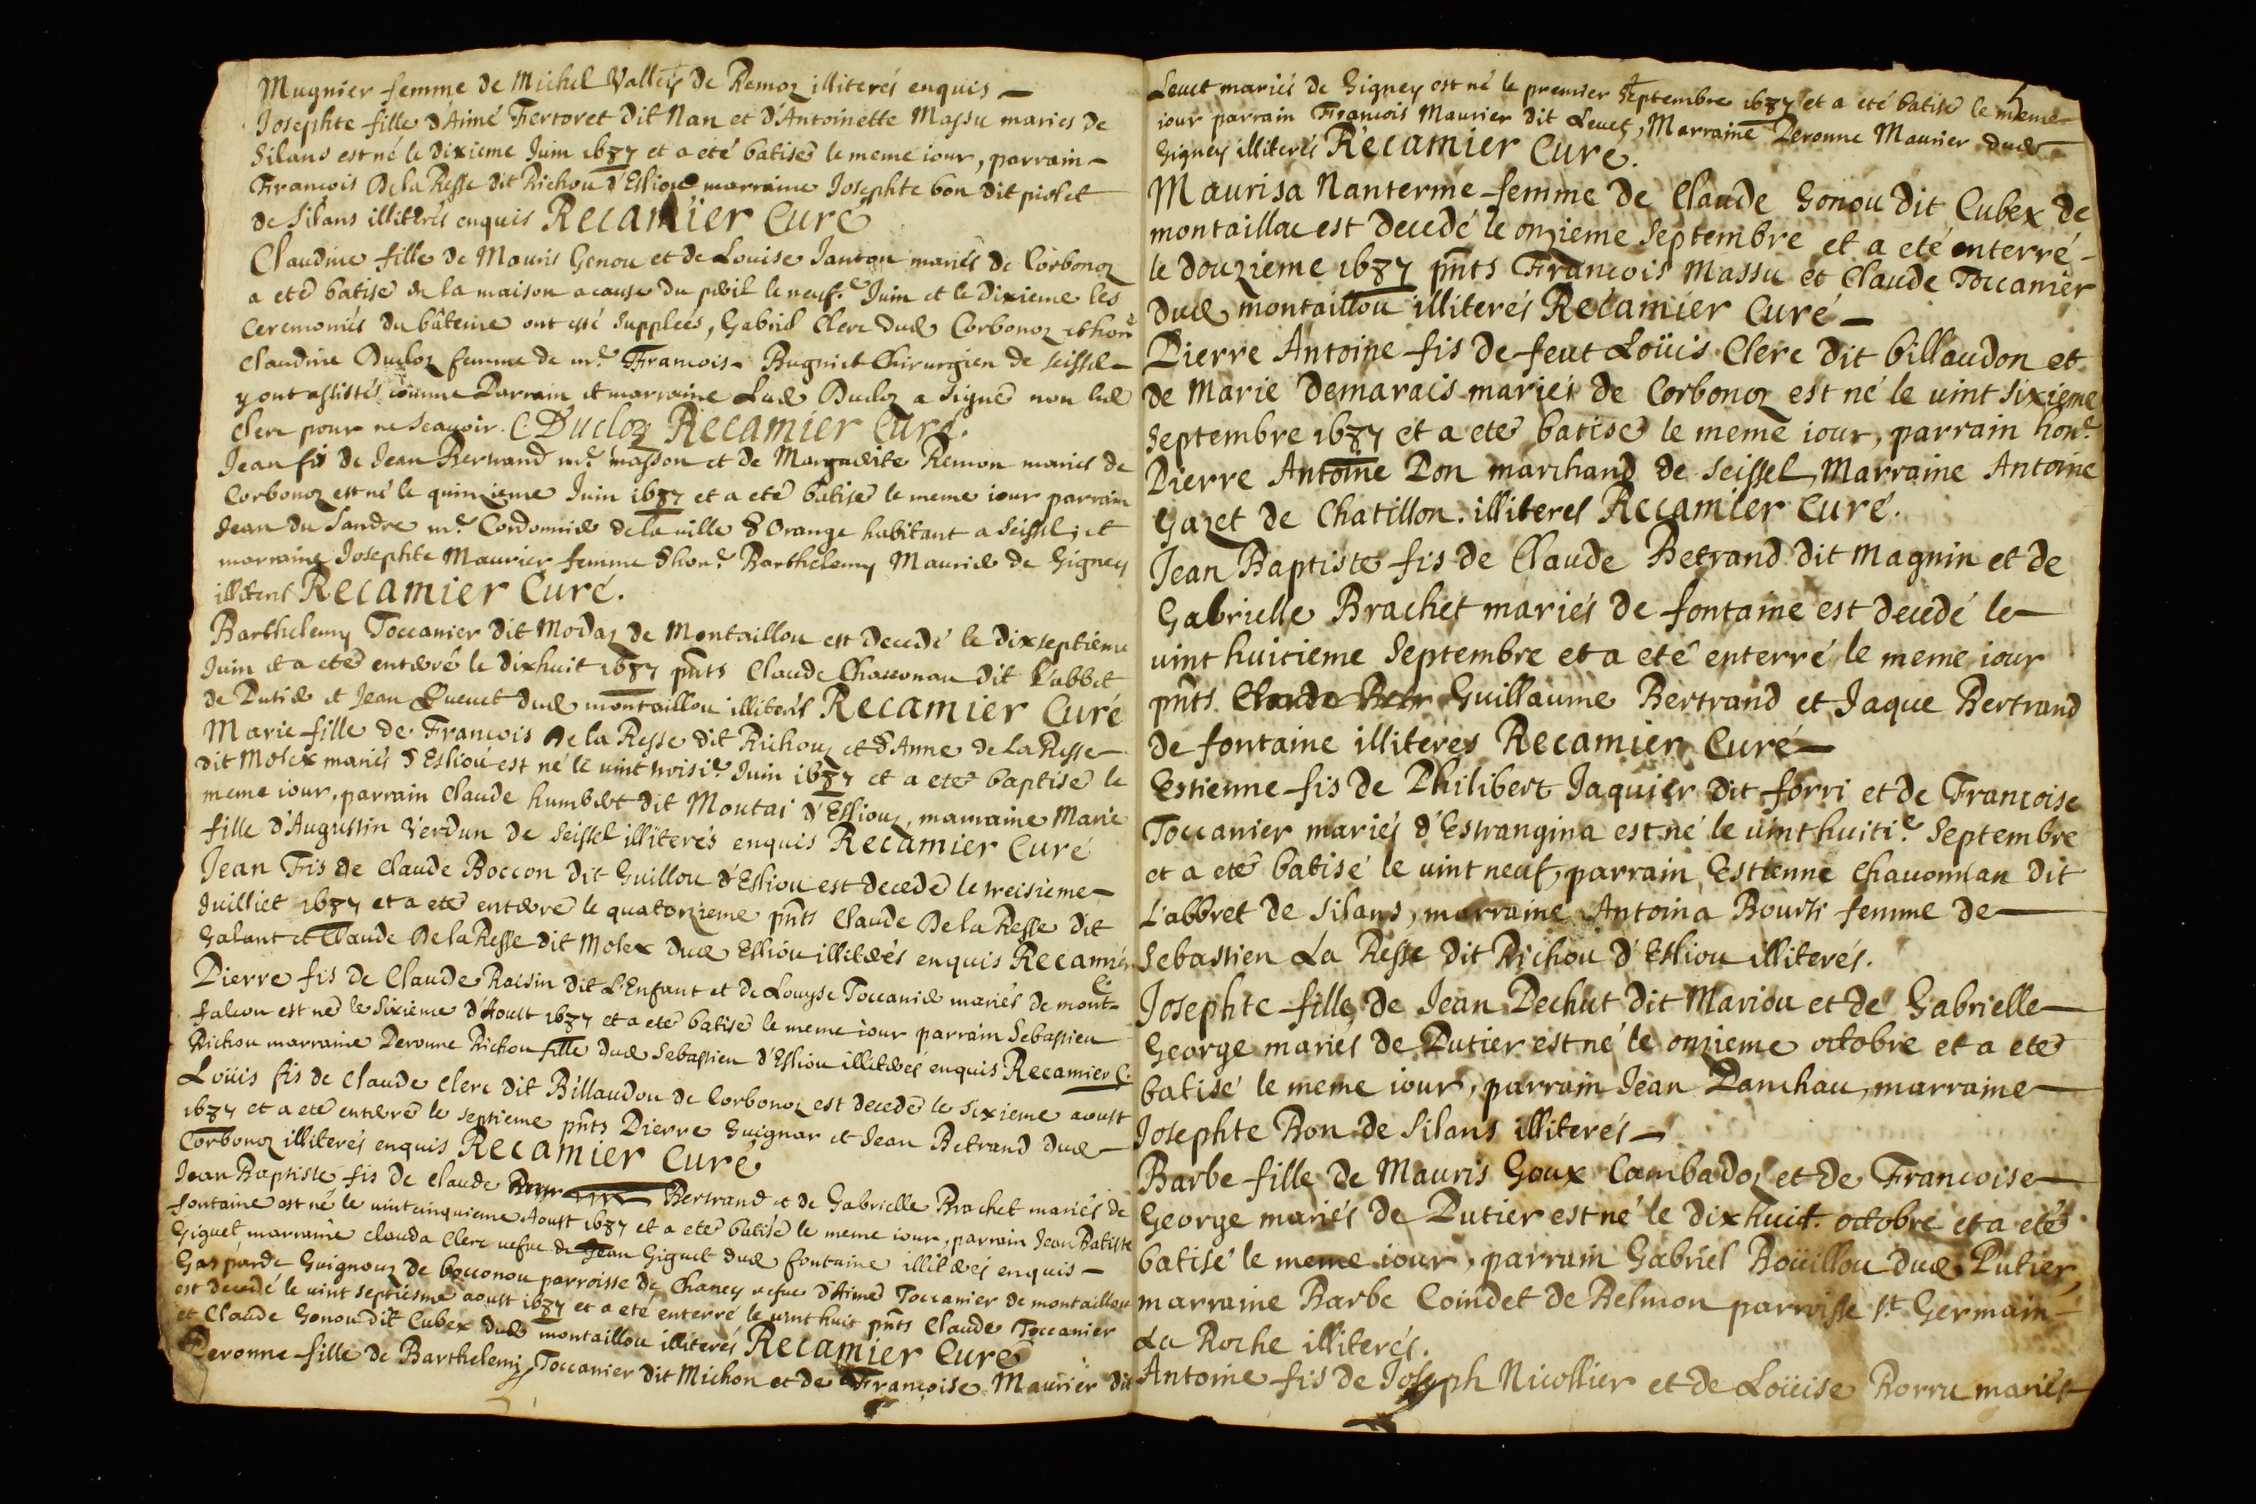 Mugnier femme de Michel Valleiy de Remoz illiterés enquis
Josephte fille d'Aimé Fertoret dit Nan et d'Antoinette Massu mariés de
Silans est né le dixieme Juin 1687 et a eté batisé le meme iour, parrain
François De la Resse dit Richou d'Esliou marraine Josephte bon dit piolet
de Silans illiterés enquis Recamier Curé
Claudine fille de Mauris Genou et de Louise Janton mariés de Corbonoz
a eté batisé de la maison a cause du peril le neuf.e Juin et le dixieme les
ceremonies du bâteme ont esté supplées, Gabriel Clerc dud Corbonoz et hon.e
Claudine Ducloz femme de m.e François Bugniet Chirurgien de seissel
y ont assistés comme Parrain et marraine Lad Ducloz a signé non led
Clerc pour ne scavoir. C Ducloz Recamier Curé.
Jean fis de Jean Bertrand m.e masson et de Marguerite Remon mariés de
Corbonoz est né le quinzieme Juin 1687 et a eté batisé le meme iour parrain
Jean du Sandre m.e Cordonnier de la ville d'Orange habitant a Seissel, et
marraine Josephte Maurier femme d'hon.e Barthelemy Maurier de Gigney
illiterés Recamier Curé.
Barthelemy Toccanier dit Modaz de Montaillou est decedé le dixseptieme
Juin et a eté enterré le dixhuit 1687 pñts Claude Chavonau dit L'abbet
de Putier et Jean Quevet dud montaillou illiterés Recamier Curé
Marie fille de François De la Resse dit Richouz et d'Anne de La Resse
dit Molex mariés d'Esliou est né le vint troisi.e Juin 1687 et a eté baptisé le
meme iour, parrain Claude humbert dit Moutai d'Esliouz, marraine Marie
fille d'Augustin Verdun de Seissel illiterés enquis Recamier Curé
Jean Fis de Claude Boccon dit Guillou d'Esliou est decedé le treisieme
Juilliet 1687 et a eté enterré le quatorzieme pñts Claude De la Resse dit
Galant et Claude De la Resse dit Molex dud Esliou illiterés enquis Recamier
C.
Pierre fis de Claude Raisin dit L'Enfant et de Louyse Toccanier mariés de mont
falcon est né le Sixieme d'Aoust 1687 et a eté batisé le meme iour parrain Sebastien
Richou marraine Peronne Richou fille dud Sebastien d'Esliou illiterés enquis Recamier C.
Loüis fis de Claude Clerc dit Billaudon de Corbonoz est decedé le Sixieme aoust
1687 et a eté enterré le septieme pñts Pierre Guignar et Jean Betrand dud
Corbonoz illiterés enquis Recamier Curé
Jean Baptiste fis de Claude Bertrand et de Gabrielle Brachet mariés de
fontaine est né le vint cinquieme Aoust 1687 et a eté batisé le meme iour, parrain Jean Batiste
Giguet, marraine Clauda Clerc vefve de Jean Giguet dud fontaine illiterés enquis
Gasparde Guignouz de bocconou parroisse de Chaney vefve d'Aimé Toccanier de montaillou
est decedé le vint septiesme aoust 1687 et a eté enterré le vint huit pñts Claude Toccanier
et Claude Gonou dit Cubex dud montaillou illiterés Recamier Curé
Peronne fille de Barthelemy Toccanier dit Michon et de Françoise Maurier dit
Levet mariés de Gigney est né le premier Septembre 1687 et a eté batisé le meme
iour parrain François Maurier dit Levet, Marraine Peronne Maurier dud
Gigney illiterés Recamier Curé.
Maurisa Nanterme femme de Claude Gonou dit Cubex de
montaillou est decedé le onzieme Septembre et a eté enterré
le douzieme 1687 pñts François Massu et Claude Toccanier
dud montaillou illiterés Recamier Curé
Pierre Antoine fis de feut Loüis Clerc dit billaudon et
de Marie Demarais mariés de Corbonoz est né le vint sixieme
Septembre 1687 et a eté batisé le meme iour, parrain hon.e
Pierre Antoine Pon marchand de Seissel, Marraine Antoine
Gazet de Chatillon. illiterés Recamier Curé.
Jean Baptiste fis de Claude Betrand dit Magnin et de
Gabrielle Brachet mariés de fontaine est decedé le
vint huitieme Septembre et a eté enterré le meme iour
pñts Claude Betr Guillaume Bertrand et Jaque Bertrand
de fontaine illiteres Recamier Curé
Estienne fis de Philibert Jaquier dit forri et de Françoise
Toccanier mariés d'Estrangina est né le vint huiti.e Septembre
et a eté batisé le vint neuf, parrain Estienne Chavonnan dit
L'abbret de Silans, marraine Antoina Bourti femme de
Sebastien La Resse dit Richou d'Esliou illiterés.
Josephte fille de Jean Dechut dit Mariou et de Gabrielle
George mariés de Putier est né le onzieme octobre et a eté
batisé le meme iour, parrain Jean Danchau, marraine
Josephte Bon de Silans illiterés
Barbe fille de Mauris Goux Cambadoz et de Françoise
George mariés de Putier est né le dixhuit octobre et a eté
batisé le meme iour, parrain Gabriel Boüillou dud Putier,
marraine Barbe Coindet de Belmon parroisse st Germain
La Roche illiterés.
Antoine fis de Joseph Nicollier et de Loüise Rorru mariés